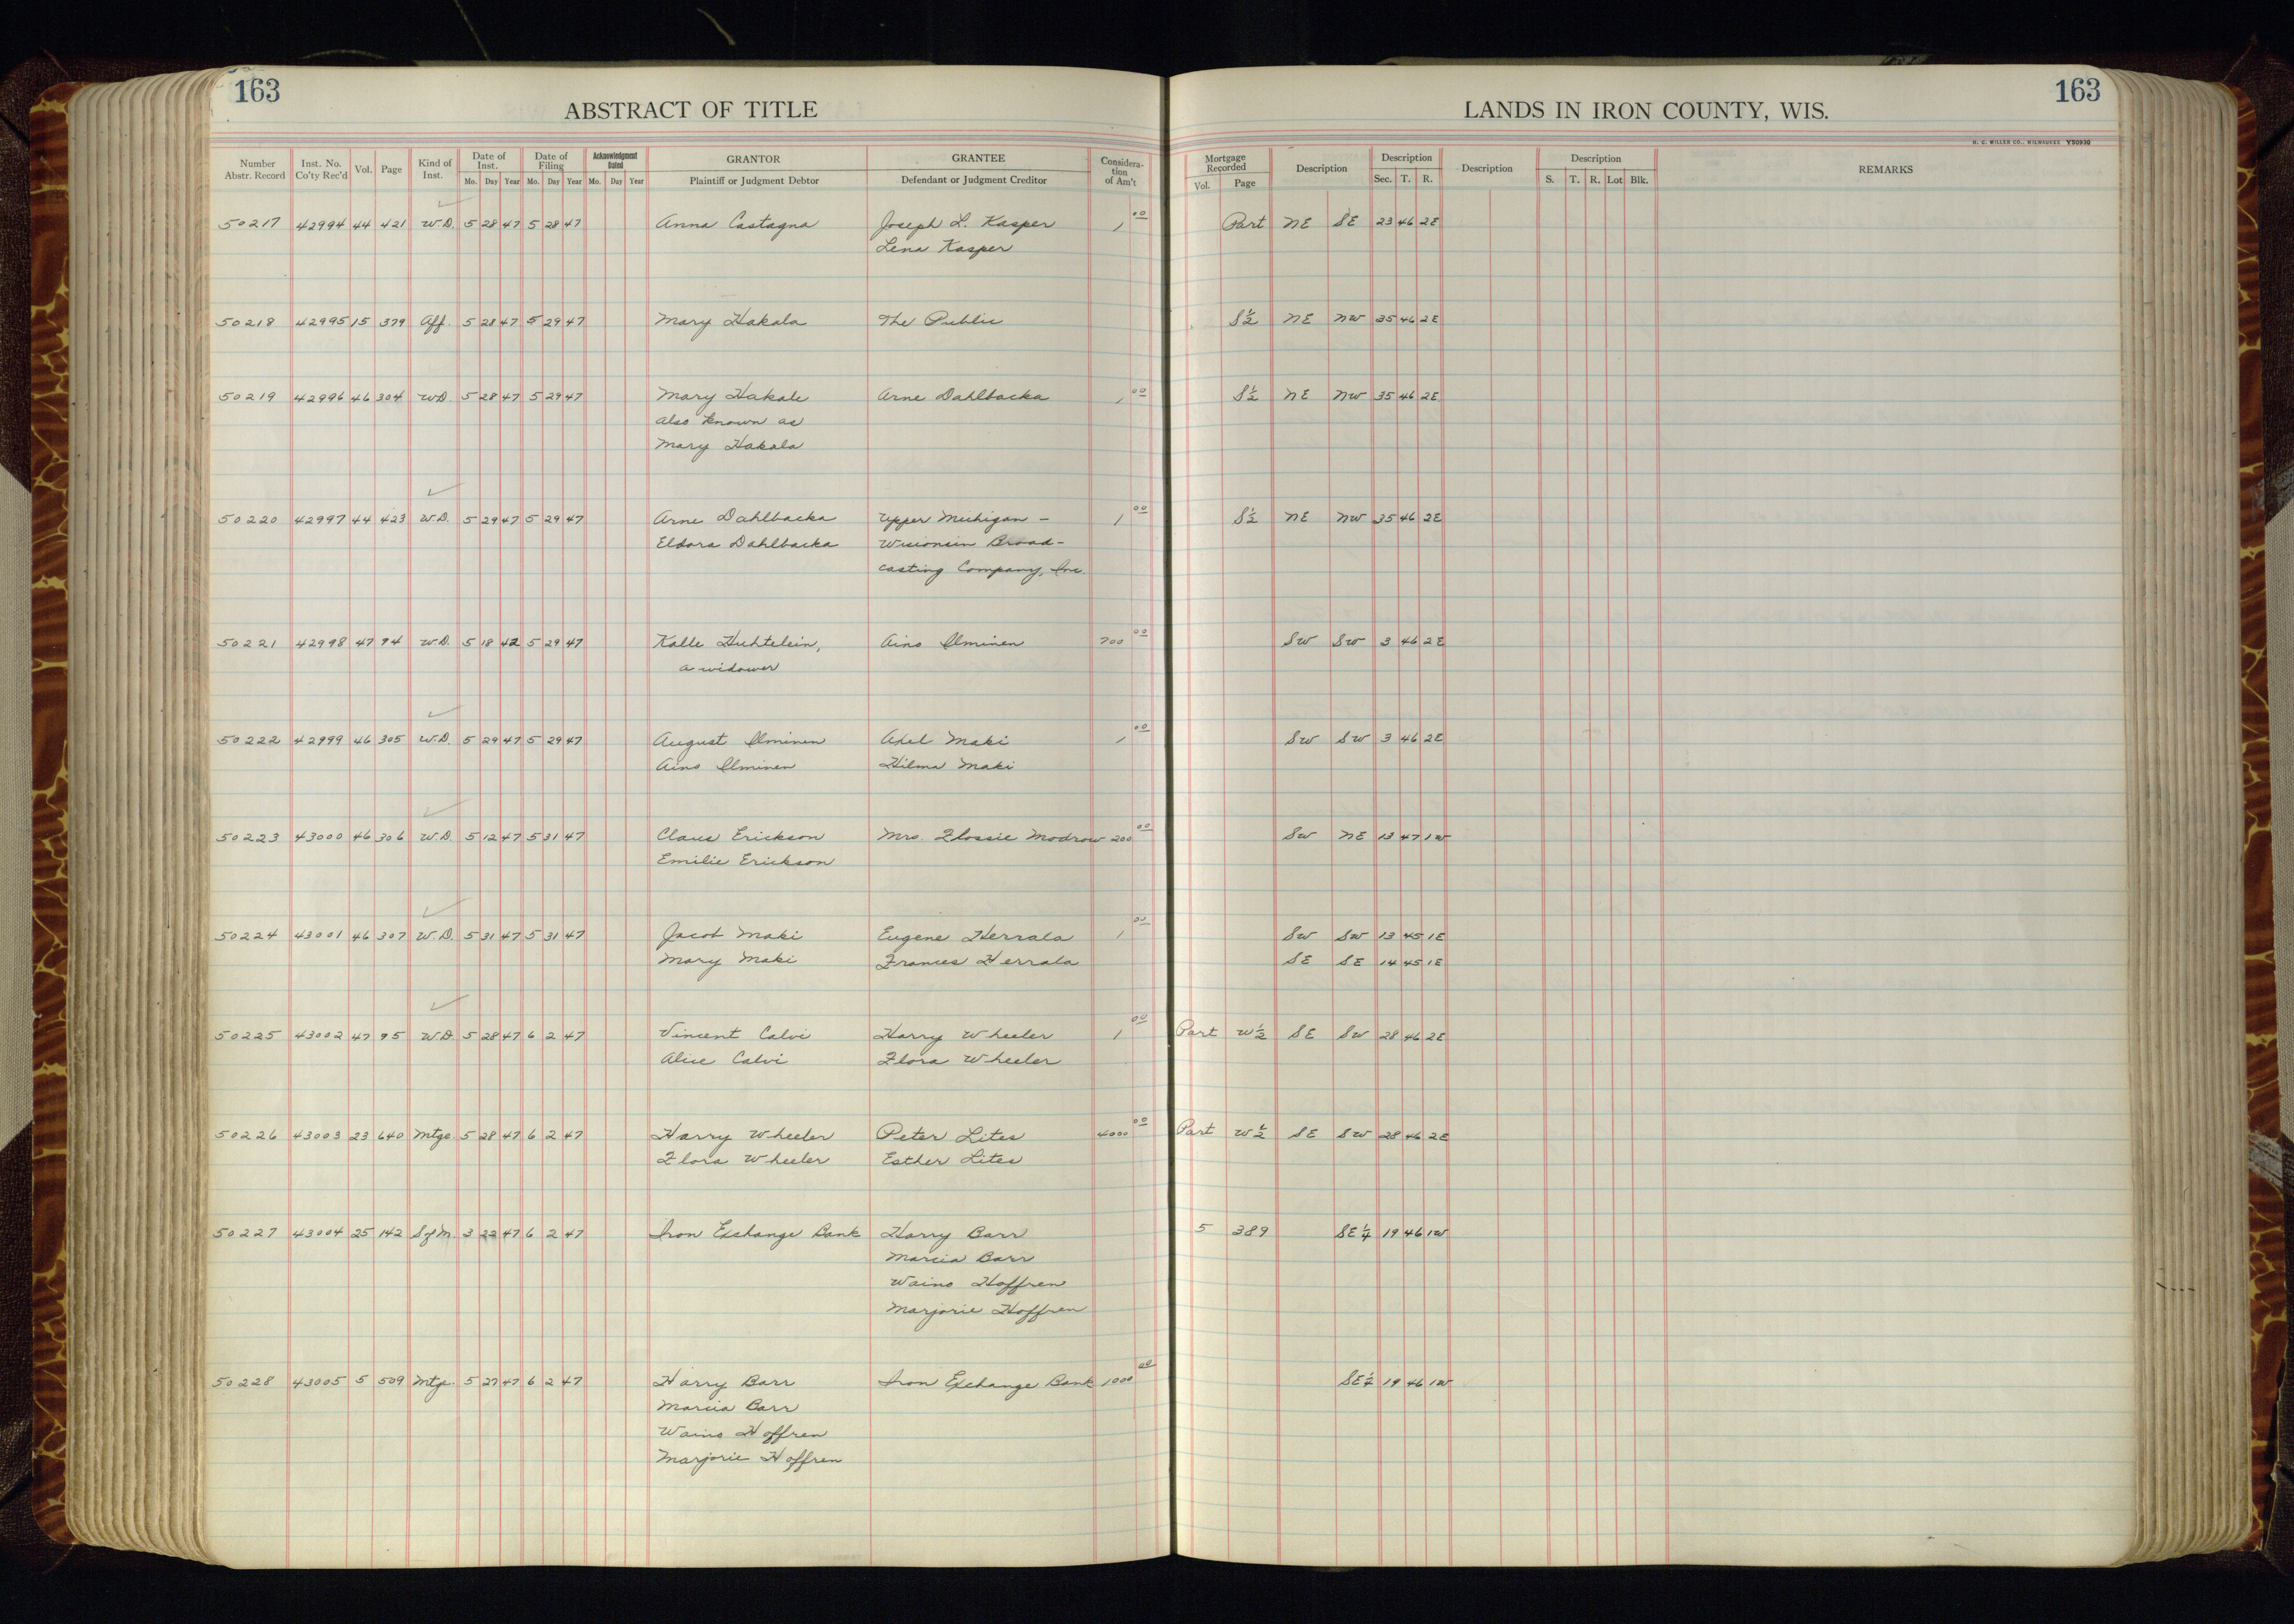 163
ABSTRACT OF TITLE
LANDS IN IRON COUNTY, WIS.
163
H. C. MILLER CO., MILWAUKEE Y50930
Number Abstr. Record | Inst. No. Co'ty Rec'd | Vol. | Page | Kind of Inst. | Date of Inst. Mo. Day Year | Date of Filing Mo. Day Year | Acknowledgment Dated Mo. Day Year | GRANTOR Plaintiff or Judgment Debtor | GRANTEE Defendant or Judgment Creditor | Consideration of Am't | Mortgage Recorded Vol. Page | Description | Description Sec. T. R. | Description | Description S. T. R. Lot Blk. | REMARKS
50217 42994 44 421 W.D. 5 28 47 5 28 47 Anna Castagna Joseph L. Kasper 1 00 Part NE SE 23 46 2E
Lena Kasper
50218 42995 15 379 Aff. 5 28 47 5 29 47 Mary Hakala The Public S½ NE NW 35 46 2E
50219 42996 46 304 W.D. 5 28 47 5 29 47 Mary Hakale Arne Dahlbacka 1 00 S½ NE NW 35 46 2E
also known as
Mary Hakala
50220 42997 44 423 W.D. 5 29 47 5 29 47 Arne Dahlbacka Upper Michigan - 1 00 S½ NE NW 35 46 2E
Eldora Dahlbacka Wisconsin Broad-
casting Company, Inc.
50221 42998 47 94 W.D. 5 18 42 5 29 47 Kalle Huhtelein, Aino Ilminen 700 00 SW SW 3 46 2E
a widower
50222 42999 46 305 W.D. 5 29 47 5 29 47 August Ilminen Axel Maki 1 00 SW SW 3 46 2E
Aino Ilminen Hilma Maki
50223 43000 46 306 W.D. 5 12 47 5 31 47 Claus Erickson Mrs. Flossie Modrow 200 00 SW NE 13 47 1W
Emilie Erickson
50224 43001 46 307 W.D. 5 31 47 5 31 47 Jacob Maki Eugene Herrala 1 00 SW SW 13 45 1E
Mary Maki Frances Herrala SE SE 14 45 1E
50225 43002 47 95 W.D. 5 28 47 6 2 47 Vincent Calvi Harry Wheeler 1 00 Part W½ SE SW 28 46 2E
Alice Calvi Flora Wheeler
50226 43003 23 640 Mtge. 5 28 47 6 2 47 Harry Wheeler Peter Lites 4000 00 Part W½ SE SW 28 46 2E
Flora Wheeler Esther Lites
50227 43004 25 142 S of M. 3 22 47 6 2 47 Iron Exchange Bank Harry Barr 5 389 SE¼ 19 46 1W
Marcia Barr
Waino Hoffren
Marjorie Hoffren
50228 43005 5 509 Mtge. 5 27 47 6 2 47 Harry Barr Iron Exchange Bank 1000 00 SE¼ 19 46 1W
Marcia Barr
Waino Hoffren
Marjorie Hoffren